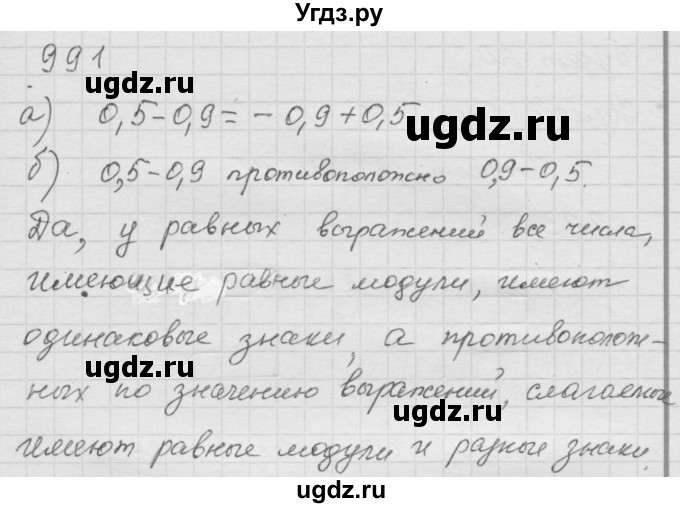 Угдз.ру
991
ugdz.ru
а) 0,5-0,9=-0,9+0,5
ugdz.ru
б) 0,5-0,9 противоположно 0,9-0,5.
Да, у равных выражений все числа,
имеющие равные модули, имеют
одинаковые знаки, а противополож-
ugdz.ru
ных по значению выражений, слагаемые
ugdz.ru
имеют равные модули и разные знаки.
ugdz.ru